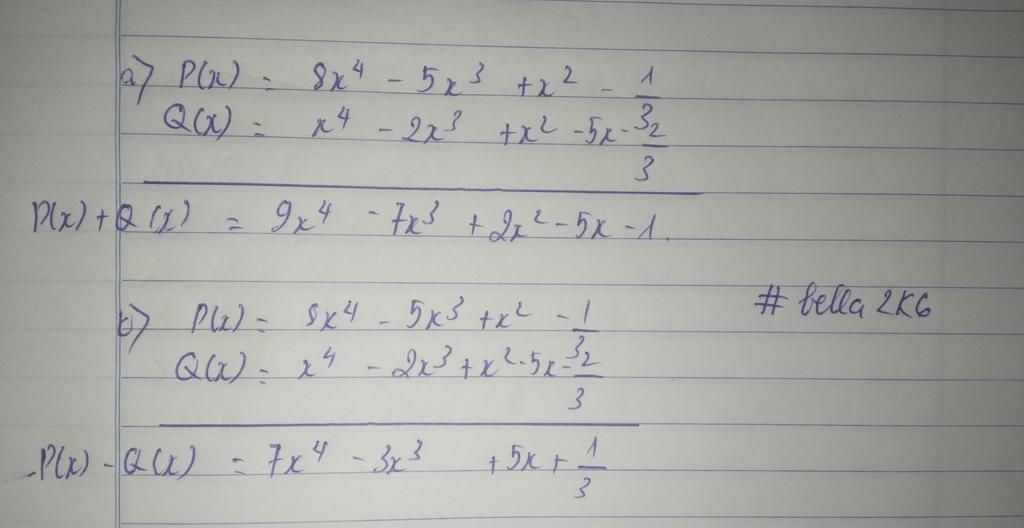 a) P(x) = 8x⁴ - 5x³ + x² - 1/3
Q(x) = x⁴ - 2x³ + x² - 5x - 2/3
P(x) + Q(x) = 9x⁴ - 7x³ + 2x² - 5x - 1.
b) P(x) = 8x⁴ - 5x³ + x² - 1/3
Q(x) = x⁴ - 2x³ + x² - 5x - 2/3
P(x) - Q(x) = 7x⁴ - 3x³ + 5x + 1/3
# bella 2K6